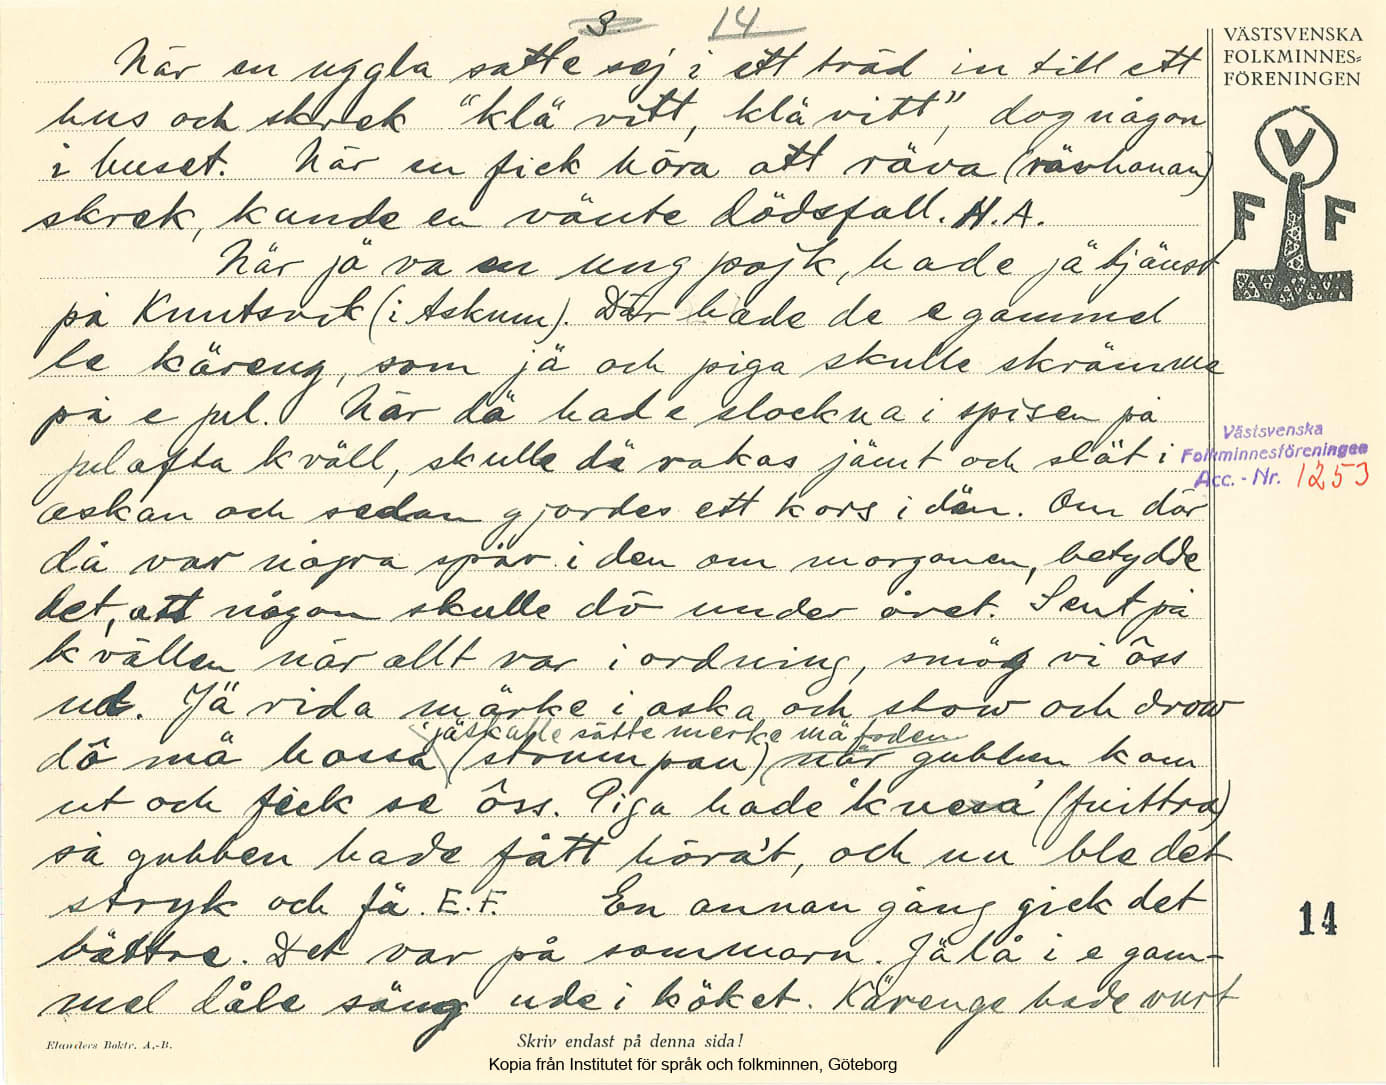 3. 14.
VÄSTSVENSKA
FOLKMINNES=
FÖRENINGEN
V
F F
När en uggla satte sej i ett träd in till ett
hus och skrek "klä vitt, klä vitt", dog någon
i huset. När en fick höra att räva (rävhanan)
skrek, kunde en vänte dödsfall. H.A.
När jä va en ung pojk, hade jä tjänst
på Knutsvik (i Askum). Där hade de e gammel
le käreng, som jä och piga skulle skrämma
på e jul. När dä hade slockna i spisen på
julafta kväll, skulle dä rakas jämt och slät i
askan och sedan gjordes ett kors i dän. Om där
då var några spår i den om morgonen, betydde
det, att någon skulle dö under året. Sent på
kvällen när allt var i ordning, smög vi öss
ud. Jä rida märke i aska och stow och drow
jä skulle sätte merke mä foden
dô mä hossa (strumpan) när gubben kom
ut och fick se ôss. Piga hade 'knesa' (fnittra)
så gubben hade fått höra't, och nu ble det
stryk och fä. E.F. En annan gång gick det
bättre. Det var på sommarn. Jä lå i e gam-
mel dåle säng ude i köket. Kärenge hade vurt
Västsvenska
Folkminnesföreningen
Acc. - Nr. 1253
14
Elanders Boktr. A.-B.
Skriv endast på denna sida!
Kopia från Institutet för språk och folkminnen, Göteborg